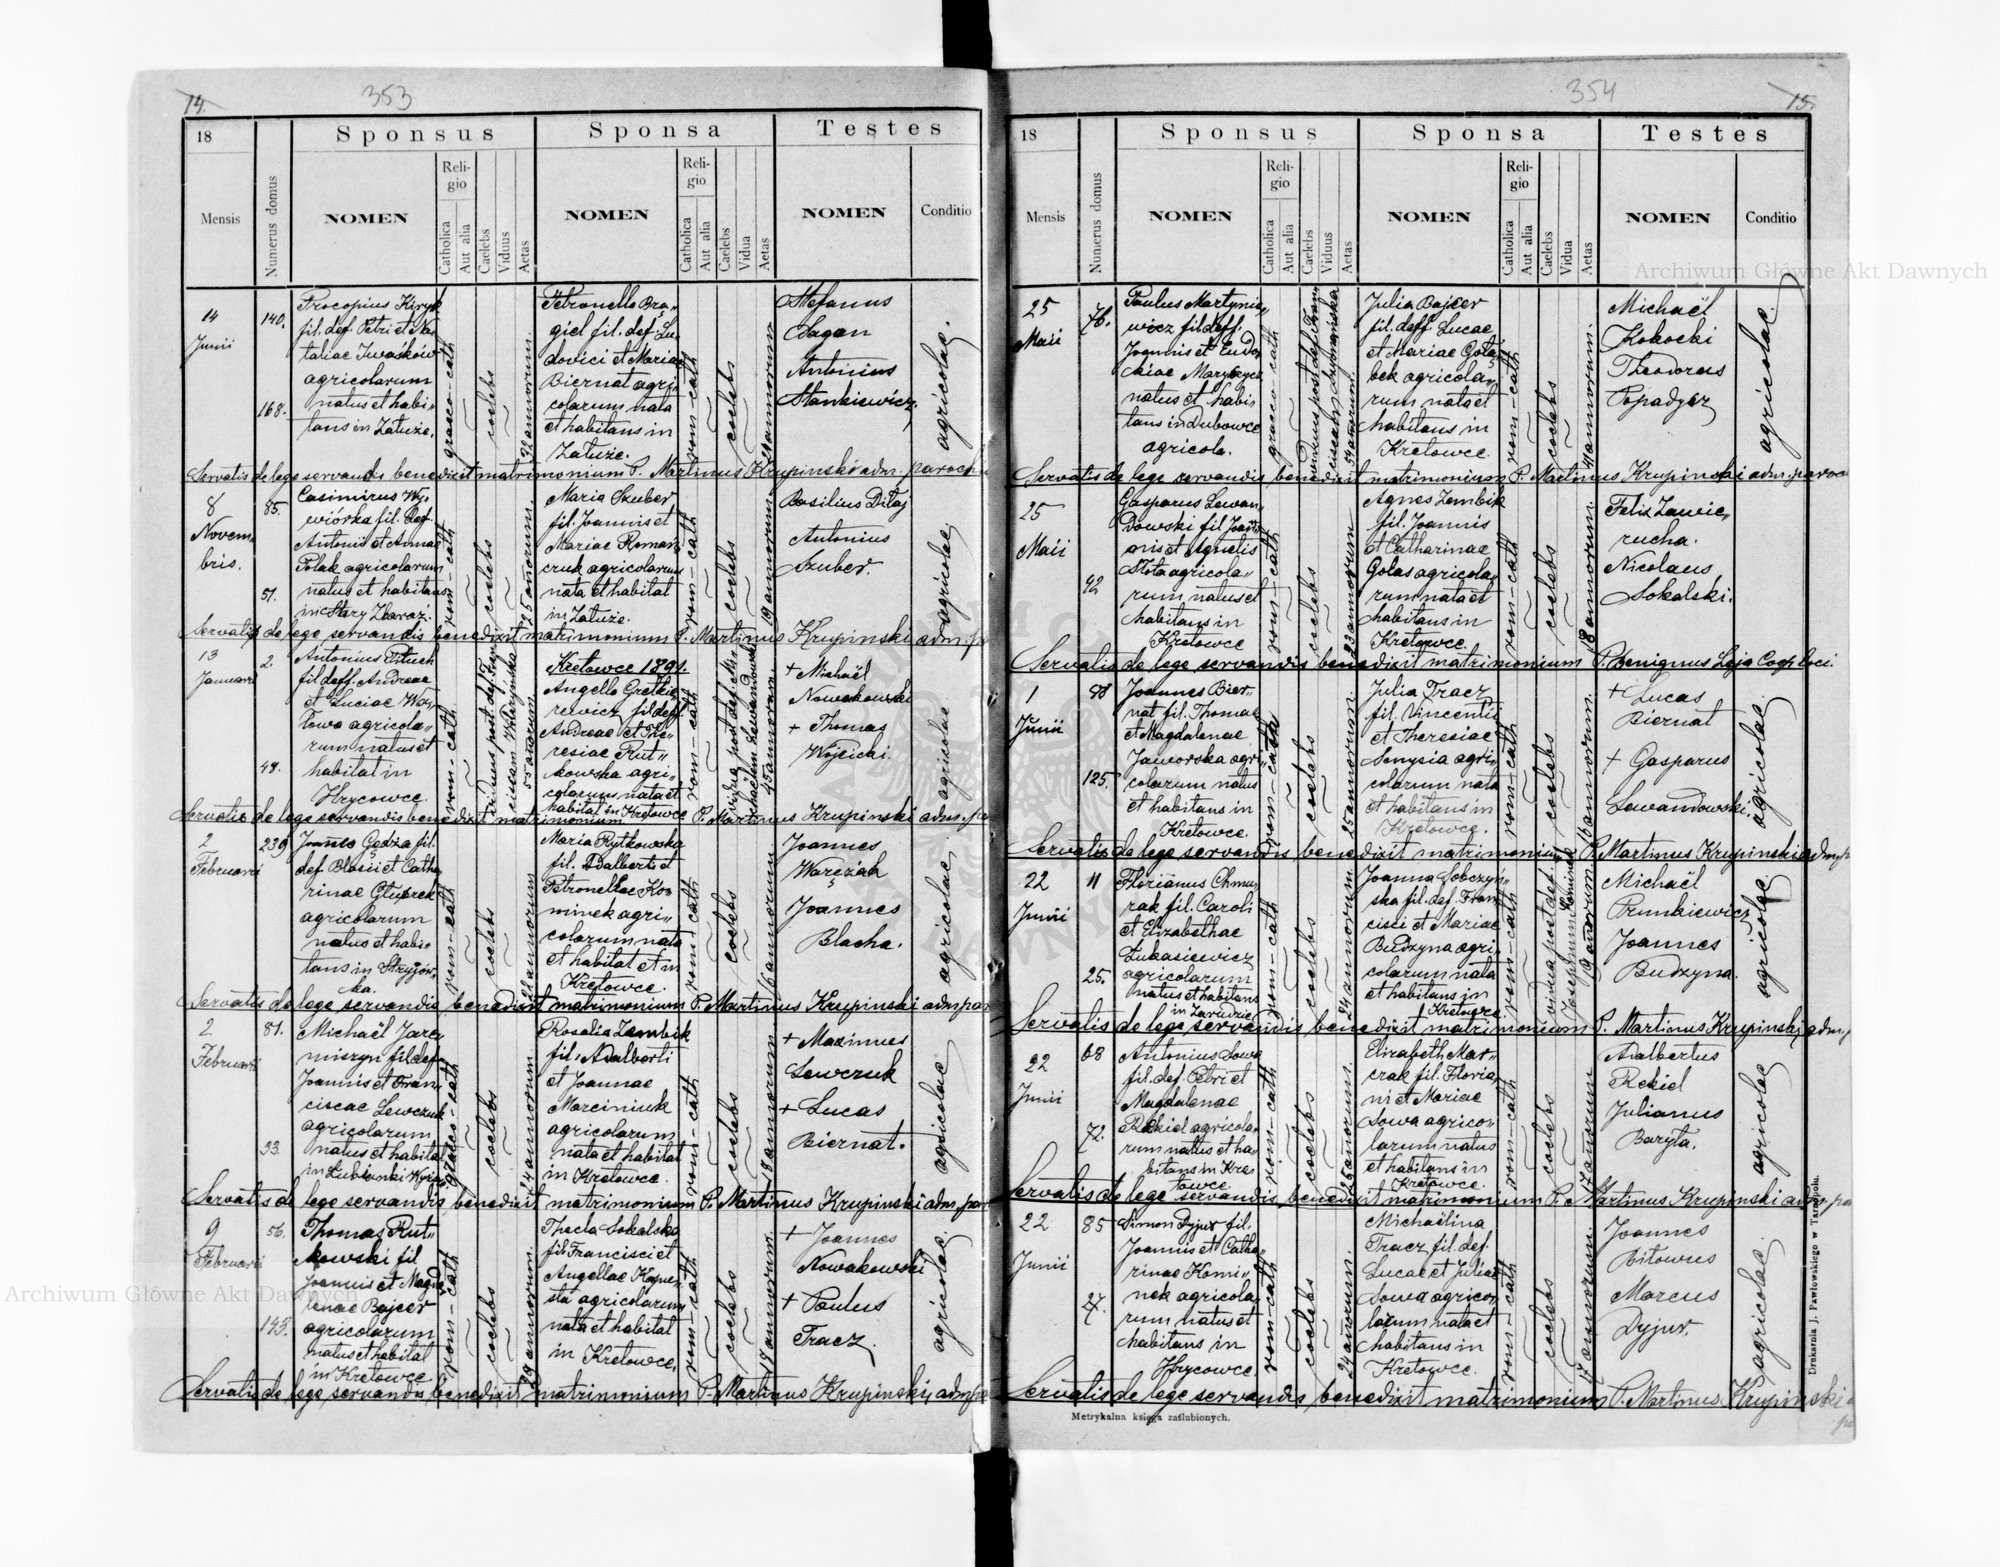 14.
353
18
Mensis
Numerus domus
Sponsus
NOMEN
Religio
Catholica
Aut alia
Caelebs
Viduus
Aetas
Sponsa
NOMEN
Religio
Catholica
Aut alia
Caelebs
Vidua
Aetas
Testes
NOMEN
Conditio
14
Junii
140.
168.
Procopius
fil. def. Petri et Na„
taliae Iwaśków
agricolarum
natus et habi„
tans in Załuże.
graeco-cath
coelebs
Petronella Bra„
giel fil. def. Lu„
dovici et Mariae
Biernat agri
colarum nata
et habitans in
Załuże.
rom-cath
coelebs
Stefanus
Dagan
Antonius
Stankiewicz.
agricolae.
Servatis de lege servandis benedixit matrimonium P. Martinus Krupinski adm. paroch
8
Novem„
bris.
85.
51.
Casimirus Wy„
wiórka fil. def.
Antonii et Annae
Polak agricolarum
natus et habitans
in Stary Zbaraż.
rom-cath
coelebs
25 annorum.
Maria Szuber
fil. Joannis et
Mariae Roman
czuk agricolarum
nata et habitat
in Załuże.
rom-cath
coelebs
19 annorum.
Basilius Diłaj
Antonius
Szuber.
agricolae
Servatis de lege servandis benedixit matrimonium P. Martinus Krupinski adm. p
13
Januarii
2.
49.
Antonius Pituch
fil. deff. Andreae
et Luciae Woj„
towa agricola„
rum natus et
habitat in
Hrycowce.
rom-cath
55 annorum.
Kretowce 1891.
Angella Gretkie
rewicz fil deff.
Andreae et The„
resiae Rut„
kowska agri„
colarum nata et
habitat in Kretowce
rom-cath
45 annorum.
+ Michaël
Nowakowski
+ Thomas
Wójcicki.
agricolae
Servatis de lege servandis benedixit matrimonium P. Martinus Krupinski adm. pa
2
Februarii
239
Joannes Gędza fil.
def. Blasii et Catha„
rinae Otuprek
agricolarum
natus et habi„
tans in Stryjów„
ka.
rom-cath
coelebs
Maria Rytkowska
fil. Adalberti et
Petronellae Ko„
minek agri„
colarum nata
et habitat et in
Kretowce.
rom-cath
coelebs
16 annorum
Joannes
Warczak
Joannes
Blacha.
agricolae.
Servatis de lege servandis benedixit matrimonium P. Martinus Krupinski adm. par
2
Februarii
81.
33.
Michaël Jare„
miszyn fil def.
Joannis et Fran„
ciscae Lewczuk
agricolarum
natus et habitat
in Łubianki Wyższ
graeco-cath
coelebs
24 annorum
Rosalia Zembik
fil. Adalberti
et Joannae
Marciniuk
agricolarum
nata et habitat
in Kretowce.
rom-cath
coelebs
18 annorum
+ Maximus
Lewczuk
+ Lucas
Biernat.
agricolae
Servatis de lege servandis benedixit matrimonium P. Martinus Krupinski adm. par
9
Februarii
56.
143.
Thomas Rut„
kowski fil
Joannis et Magda
lenae Bajcer
agricolarum
natus et habitat
in Kretowce
rom-cath
coelebs
29 annorum.
Thecla Sokalska
fil. Francisci et
Angellae Kapu„
sta agricolarum
nata et habitat
in Kretowce.
rom-cath
coelebs
17 annorum.
+ Joannes
Nowakowski
+ Paulus
Tracz.
agricolae.
Servatis de lege servandis benedixit matrimonium P. Martinus Krupinski, adm pa
15.
354
18
Mensis
Numerus domus
Sponsus
NOMEN
Religio
Catholica
Aut alia
Caelebs
Viduus
Aetas
Sponsa
NOMEN
Religio
Catholica
Aut alia
Caelebs
Vidua
Aetas
Testes
NOMEN
Conditio
25
Maii
76.
Paulus Martynie„
wicz fil deff.
Joannis et Eudo
kiae
natus et habi
tans in Dubowce
agricola.
graeco-cath
54 annorum
Julia Bajcer
fil. deff. Lucae
et Mariae Gołą
bek agricola„
rum nata et
habitans in
Kretowce.
rom-cath
coelebs
41 annorum.
Michaël
Kokocki
Theodorus
Popadycz
agricolae.
Servatis de lege servandis benedixit matrimonium P. Martinus Krupinski adm. paroc
25
Maii
92
Gasparus Lewan„
dowski fil Joan„
nis et Agnetis
Słota agricola„
rum natus et
habitans in
Kretowce
rom-cath
coelebs
23 annorum
Agnes Zembik
fil. Joannis
et Catharinae
Golas agricola„
rum nata et
habitans in
Kretowce.
rom-cath
coelebs
18 annorum.
Felix Zawie„
rucha.
Nicolaus
Sokalski.
Servatis de lege servandis benedixit matrimonium P. Benignus Leja Coop loci.
1
Junii
88
125.
Joannes Bier„
nat fil. Thomae
et Magdalenae
Jaworska agri„
colarum natus
et habitans in
Kretowce.
rom-cath
coelebs
25 annorum.
Julia Tracz
fil. Vincentii
et Theresiae
Senysia agri„
colarum nata
et habitans in
Kretowce.
rom-cath
coelebs
16 annorum.
+ Lucas
Biernat
+ Gasparus
Lewandowski.
agricolae
Servatis de lege servandis benedixit matrimonium P. Martinus Krupinski adm. p
22
Junii
11
25.
Florianus Chmu„
rak fil. Caroli
et Elizabethae
Łukasiewicz
agricolarum
natus et habitans
in Zarudzie
rom-cath
coelebs
24 annorum
Joanna Sobczyń„
ska fil. def. Fran„
cisci et Mariae
Budzyna agri„
colarum nata
et habitans in
Kretowce
rom-cath
Michaël
Prunkiewicz
Joannes
Budzyna.
agricolae
Servatis de lege servandis benedixit matrimonium P. Martinus Krupinski, adm. p
22
Junii
68
72.
Antonius Sowa
fil. def. Petri et
Magdalenae
Rekiel agricola„
rum natus et ha„
bitans in Kre„
towce.
rom-cath
coelebs
25 annorum.
Elizabeth Mar„
czak fil. Floria„
ni et Mariae
Sowa agrico„
larum natus
et habitans in
Kretowce.
rom-cath
coelebs
17 annorum
Adalbertus
Rekiel
Julianus
Baryła.
agricolae
Servatis de lege servandis benedixit matrimonium P. Martinus Krupinski adm pa
22
Junii
85
27.
Simon Dyjur fil.
Joannis et Catha„
rinae Komi„
nek agricola„
rum natus et
habitans in
Hrycowce.
rom-cath
coelebs
24 annorum.
Michaëlina
Tracz fil. def.
Lucae et Juliae
Sowa agrico„
larum nata et
habitans in
Kretowce.
rom-cath
coelebs
17 annorum.
Joannes
Bitowus
Marcus
Dyjur.
agricolae.
Servatis de lege servandis benedixit matrimonium P. Martinus Krupinski
Metrykalna księga zaślubionych.
Drukarnia J. Pawłowskiego w Tarnopolu.
Archiwum Główne Akt Dawnych
Archiwum Główne Akt Dawnych